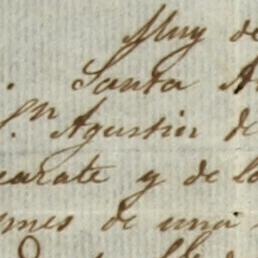 Muy de
Santa A
Sn Agustin de
carate y de lo
mes de una